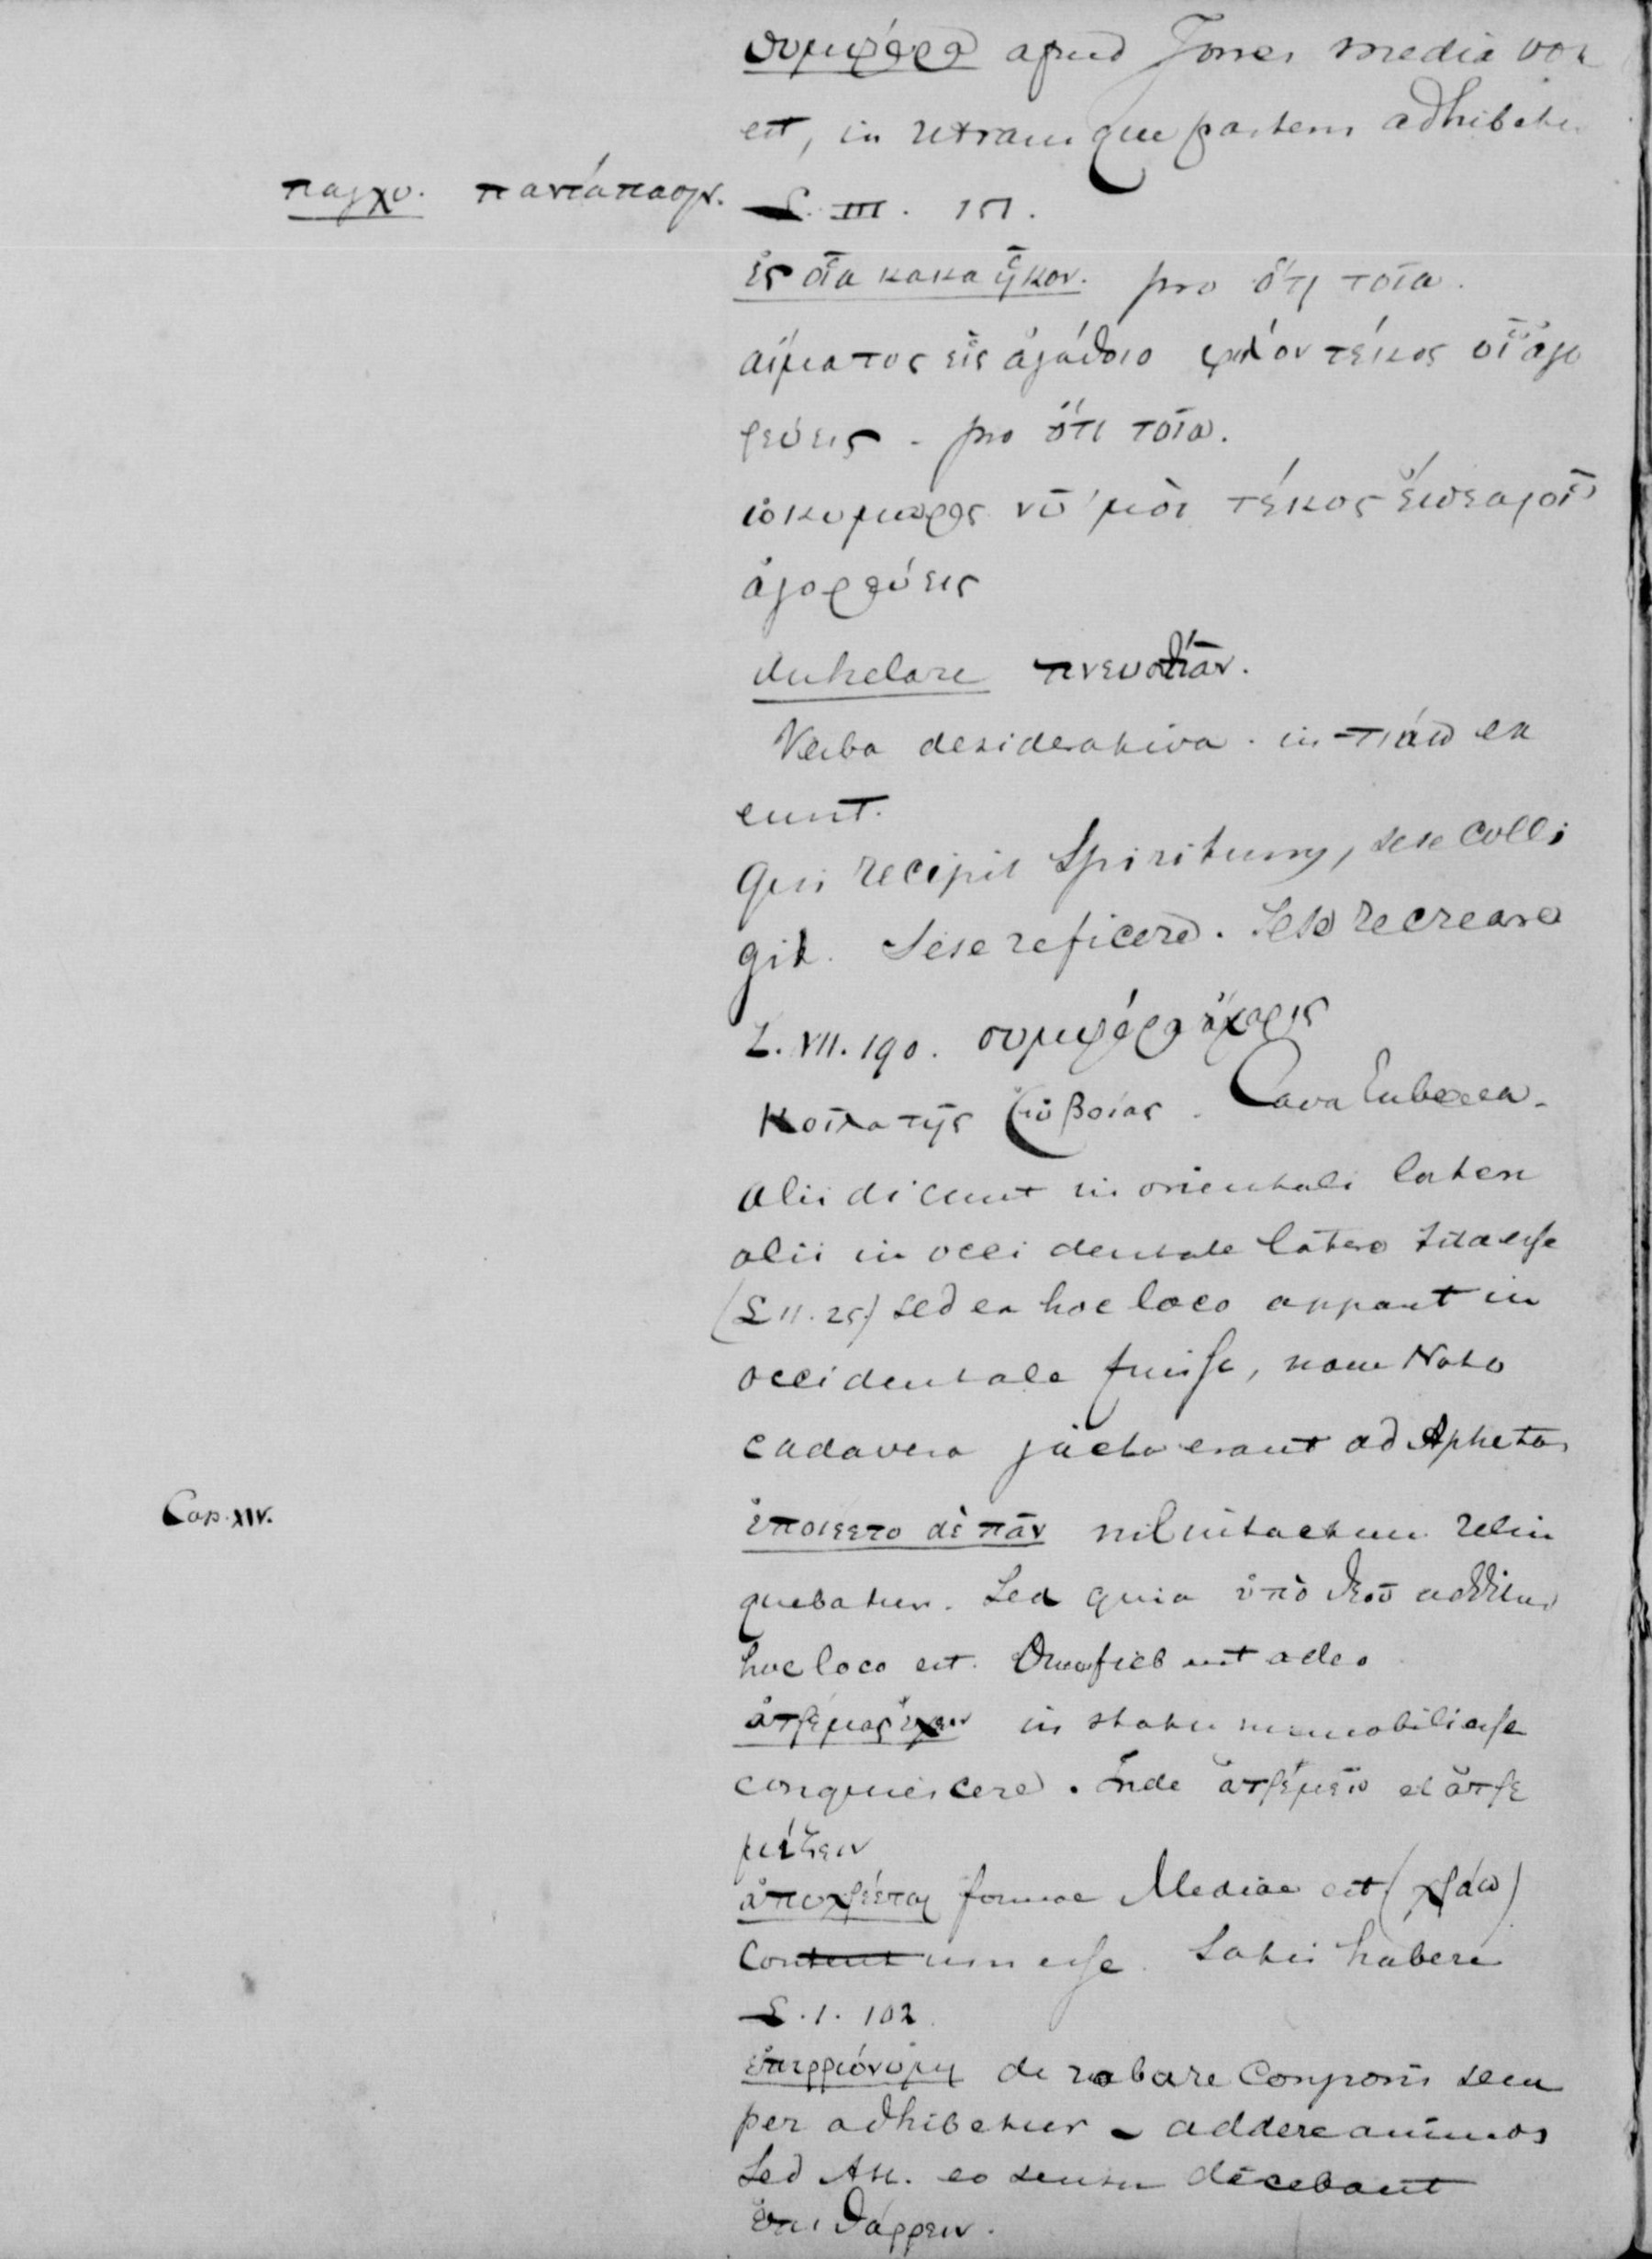 συμφορα apud Jones media vox
est, in utramque partem adhibetur
παγχυ. πανταπασιν. L. III. 151.
ἐς οἷα κακα ἧκον. pro ὅτι τοῖα.
αἵματος εἰς ἀγάθοιο φίλον τέκος οἷ ἀγο
ρεύεις. pro ὅτι τοῖα.
ὠκυμορος νῦ μοι τέκος ἔσσεαι οἷ
ἀγορεύεις
Anhelare πνευστιᾶν.
Verba desiderativa in -τιάω ex
eunt.
Qui recipit Spiritum, sese colli
git. Sese reficere. Sese recreare
L. VII. 190. συμφόρη ἄχαρις
Κοῖλα τῆς Εὐβοίας. Cava Euboea.
Alii dicunt in orientali latere
alii in occidentale latere sita esse
(L II. 25) sed ex hoc loco apparet in
occidentale fuisse, nam Noto
cadavera jacta erant ad Aphetas
Cap. XIV.
ἐποιεετο δὲ πᾶν nil intactum relin
quebatur. Sed quia ὑπὸ θεοῦ additur
hoc loco est. Omnia fiebant adeo
ἀτρέμας ἔχειν in statu immobili esse
conquiescere. Inde ἀτρεμεῖν et ἀτρε
μίζειν
ἀποχρέεται formae Mediae est (χράω)
Contentum esse. Satis habere
L. I. 102.
ἐπιρρώνυμι de robore Corporis sem
per adhibetur addere animos
Sed Att. eo sensu dicebant
ἐπιθάρρειν.